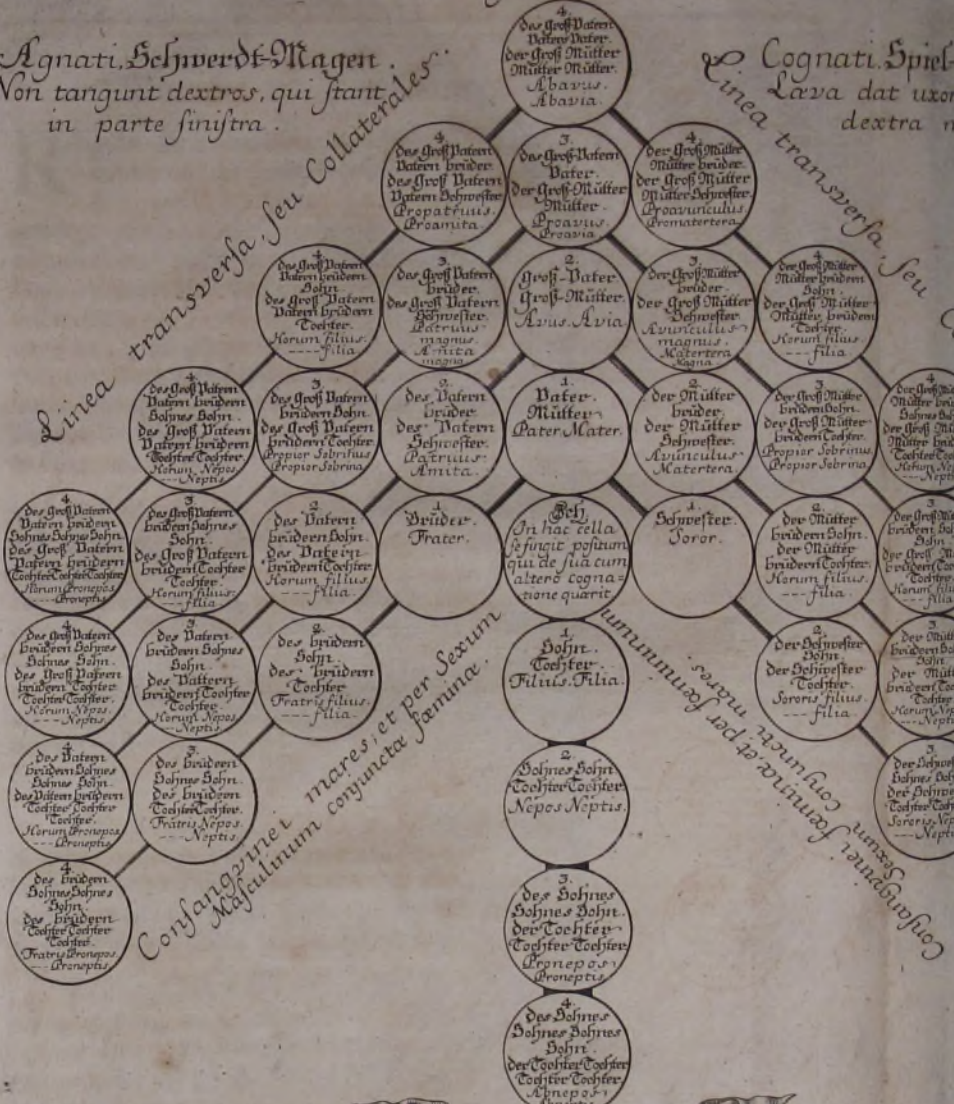 Agnati. Schwerdt-Magen.
Non tangunt dextros, qui stant
in parte sinistra.
Cognati. Spiel-
Læva dat uxor
dextra
Linea transversa, seu Collaterales
Linea transversa, seu
4.
des Groß Vatern
Vatern Vater.
der Groß Mütter
Mütter Mütter.
Abavus.
Abavia.
4.
des Groß Vatern
Vatern brüder.
des Groß Vatern
Vatern Schwester.
Propatruus.
Proamita.
3.
des Groß-Vatern
Vater.
der Groß-Mütter
Mütter.
Proavus.
Proavia.
4.
der Groß Mütter
Mütter brüder.
der Groß Mütter
Mütter Schwester.
Proavunculus.
Promatertera.
4.
des Groß Vatern
Vatern brüdern
Sohn.
des Groß Vatern
Vatern brüdern
Tochter.
Horum filius.
----filia.
3.
des Groß Vatern
brüder.
des Groß Vatern
Schwester.
Patruus
magnus.
Amita
magna.
2.
Groß-Vater
Groß-Mütter.
Avus. Avia.
3.
der Groß Mütter
brüder
der Groß Mütter
Schwester
Avunculus
magnus.
Matertera
Magna.
4.
der Groß Mütter
Mütter brüdern
Sohn.
der Groß Mütter
Mütter brüdern
Tochter.
Horum filius.
----filia.
4.
des Groß Vatern
Vatern brüdern
Sohnes Sohn.
des Groß Vatern
Vatern brüdern
Tochter Tochter.
Horum Nepos.
---Neptis.
3.
des Groß Vatern
brüdern Sohn.
des Groß Vatern
brüdern Tochter.
Propior Sobrinus
Propior Sobrina.
2.
des Vatern
brüder.
des Vatern
Schwester.
Patruus.
Amita.
1.
Vater.
Mütter.
Pater. Mater.
2.
der Mütter
brüder.
der Mütter
Schwester.
Avunculus.
Matertera.
3.
der Groß Mütter
brüdern Sohn.
der Groß Mütter
brüdern Tochter.
Propior Sobrinus.
Propior Sobrina.
4.
4.
des Groß Vatern
Vatern brüdern
Sohnes Sohnes Sohn.
des Groß Vatern
Vatern brüdern
Tochter Tochter Tochter
Horum Pronepos.
---Proneptis.
3.
des Groß Vatern
brüdern Sohnes
Sohn.
des Groß Vatern
brüdern Tochter
Tochter.
Horum filius.
---filia.
2.
des Vatern
brüdern Sohn.
des Vatern
brüdern Tochter.
Horum filius.
---filia.
1.
Brüder.
Frater.
Ich.
In hac cella
se fingit positum
qui de sua cum
altero cogna=
tione quærit.
1.
Schwester.
Soror.
2.
der Mütter
brüdern Sohn.
der Mütter
brüdern Tochter.
Horum filius.
---filia.
3.
4.
des Groß Vatern
brüdern Sohnes
Sohnes Sohn.
des Groß Vatern
brüdern Tochter
Tochter Tochter.
Horum Nepos.
---Neptis.
3.
des Vatern
brüdern Sohnes
Sohn.
des Vattern
brüdern Tochter
Tochter.
Horum Nepos.
---Neptis.
2.
des brüdern
Sohn.
des brüdern
Tochter
Fratris filius.
---filia.
1.
Sohn.
Tochter.
Filius. Filia.
2.
der Schwester
Sohn.
der Schwester
Tochter.
Sororis filius.
---filia.
3.
4.
des Vatern
brüdern Sohnes
Sohnes Sohn.
des Vatern brüdern
Tochter Tochter
Tochter.
Horum Pronepos.
---Proneptis.
3.
des brüdern
Sohnes Sohn.
des brüdern
Tochter Tochter.
Fratris Nepos.
---Neptis.
2.
Sohnes Sohn
Tochter Tochter
Nepos Neptis.
3.
4.
des brüdern
Sohnes Sohnes
Sohn.
des brüdern
Tochter Tochter
Tochter.
Fratris Pronepos.
---Proneptis.
3.
des Sohnes
Sohnes Sohn.
der Tochter
Tochter Tochter
Pronepos
Proneptis.
4.
des Sohnes
Sohnes Sohnes
Sohn.
der Tochter Tochter
Tochter Tochter.
Abnepos.
Consangvinei mares, et per Sexum
Masculinum conjunctæ fœminæ.
Consangvinei fœminæ, et per fœmininum
Sexum conjuncti mares.